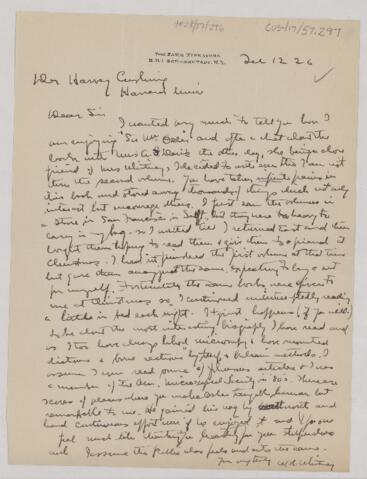 CUS4/17/57.297
THE
R.D.1 SCHENECTADY, N.Y.
Feb 12 26
Dr Harvey Cushing
Harvard Univ
Dear Sir
I wanted very much to tell you how I
am enjoying "Sir Wm Osler" and after a chat about the
book with Mrs the other day, she being a close
friend of Mrs Whitney, I decided to write even tho I am not
thru the second volume. You have taken infinite pains in
this book and stored away thousands of things which not only
interest but encourage others. I first saw the volumes in
a store in San Francisco in Sept, but they were too heavy to
carry in my bag. So I waited till I returned East and then
bought them hoping to read them & give them to a friend at
Christmas. I had not finished the first volume at that time
but gave them away just the same, expecting to buy a set
for myself. Fortunately the same books were given to
me at Christmas so I continued uninterruptedly reading
a little in bed each night. I just happens (if you will)
to be about the most interesting biography I have read and
as I too have always liked microscopy & have mounted
by methods. I
assume I even read some of articles as I was
a member of the Am. Microscopical Society in 80s. There are
scores of places where you make Osler very human but
remarkable to me. He gained his way by and
hard continuous effort even if he enjoyed it and
feel much like thanking you heartily for your stupendous
work I assume the Osler also feels and acts the same.
Yours very truly W.R. Whitney